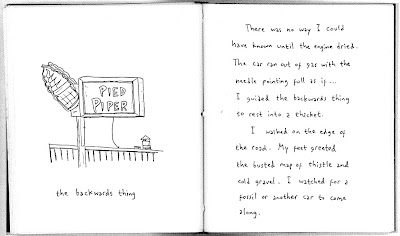 PIED
PIPER
the backwards thing
There was no way I could
have known until the engine dried.
The car ran out of gas with the
needle pointing full as if...
I guided the backwards thing
to rest into a thicket.
I washed on the edge of
the road. My feet greeted
the busted map of thistle and
cold gravel. I watched for a
fossil or another car to come
along.